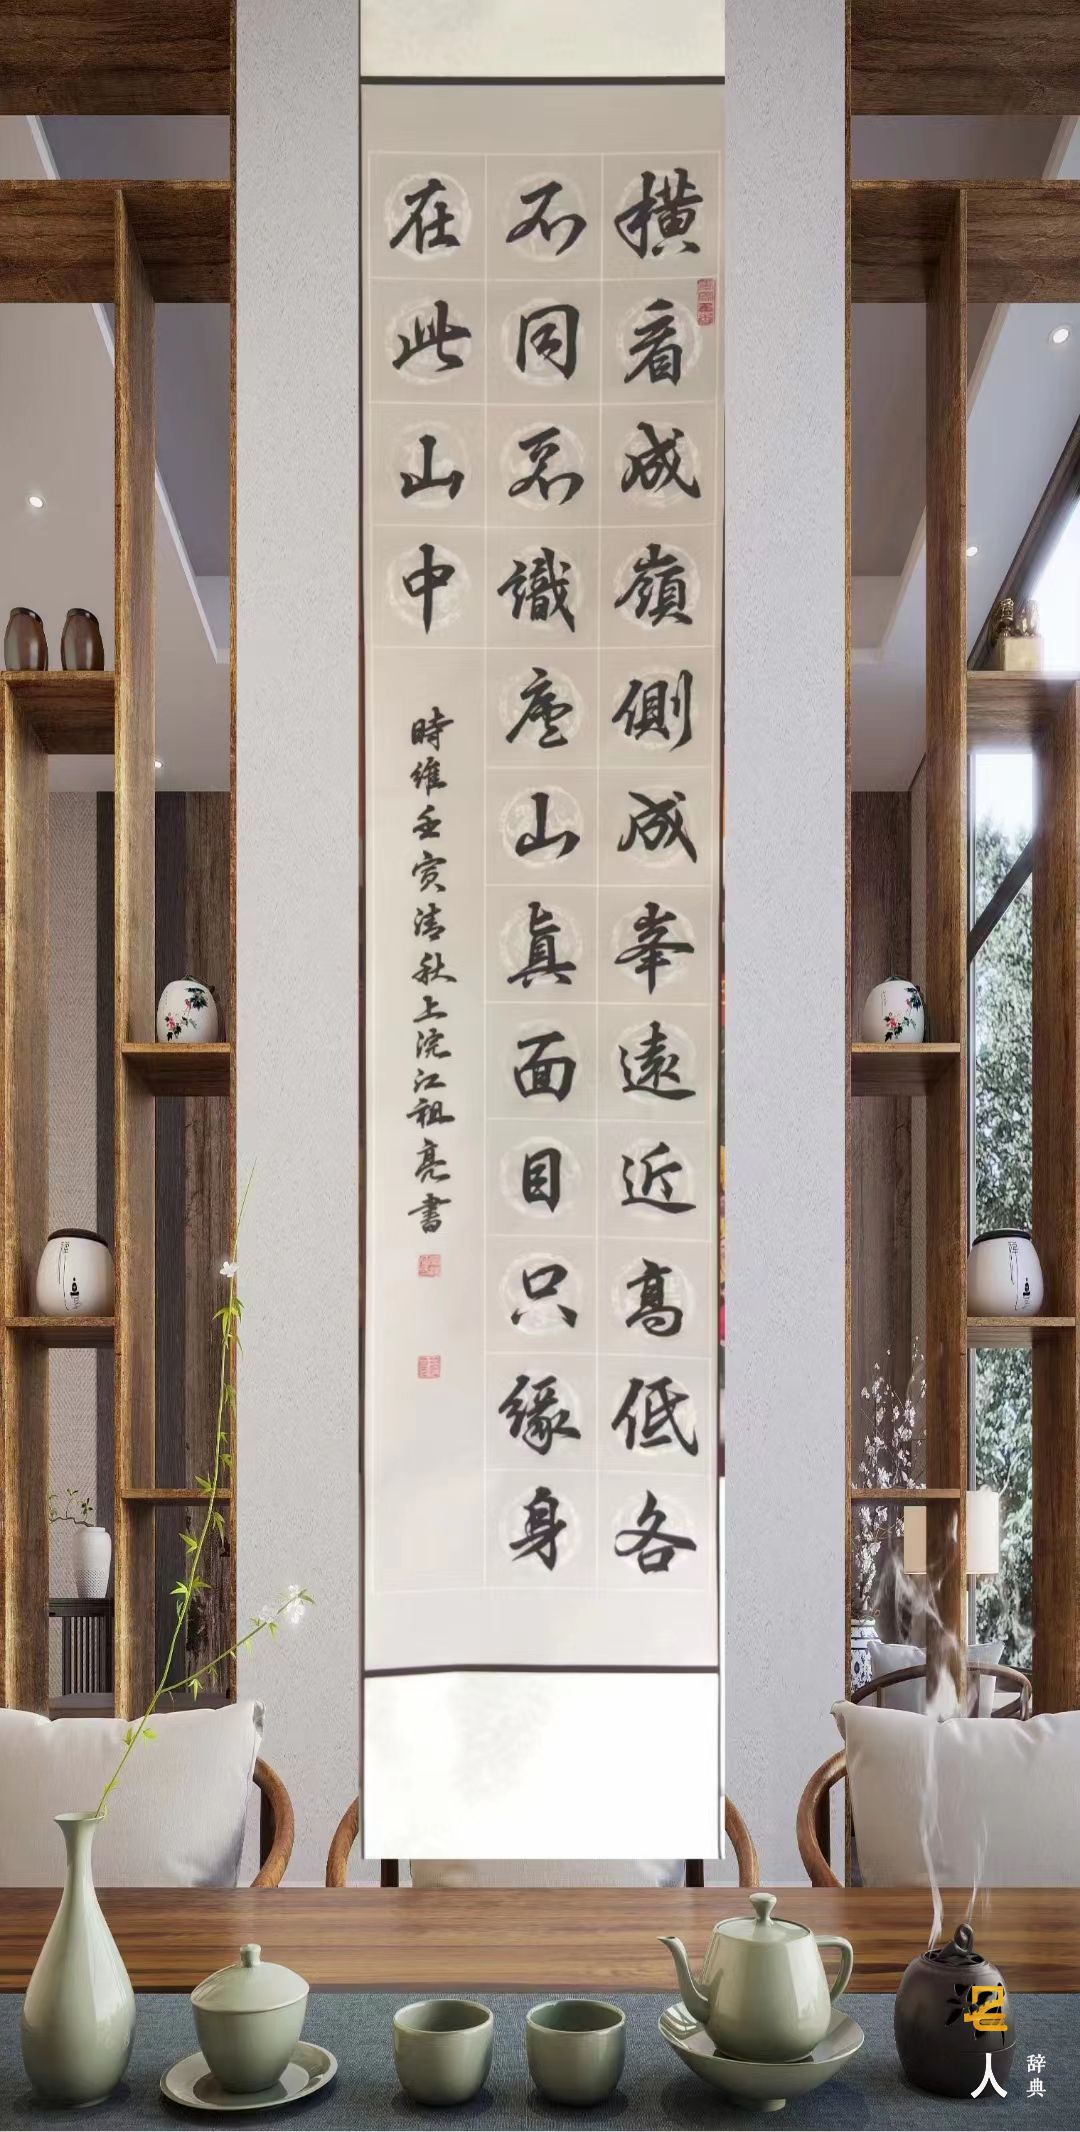 橫看成嶺側成峯遠近高低各
不同不識廬山眞面目只緣身
在此山中
時維壬寅清秋上浣江祖亮書
人
辞典